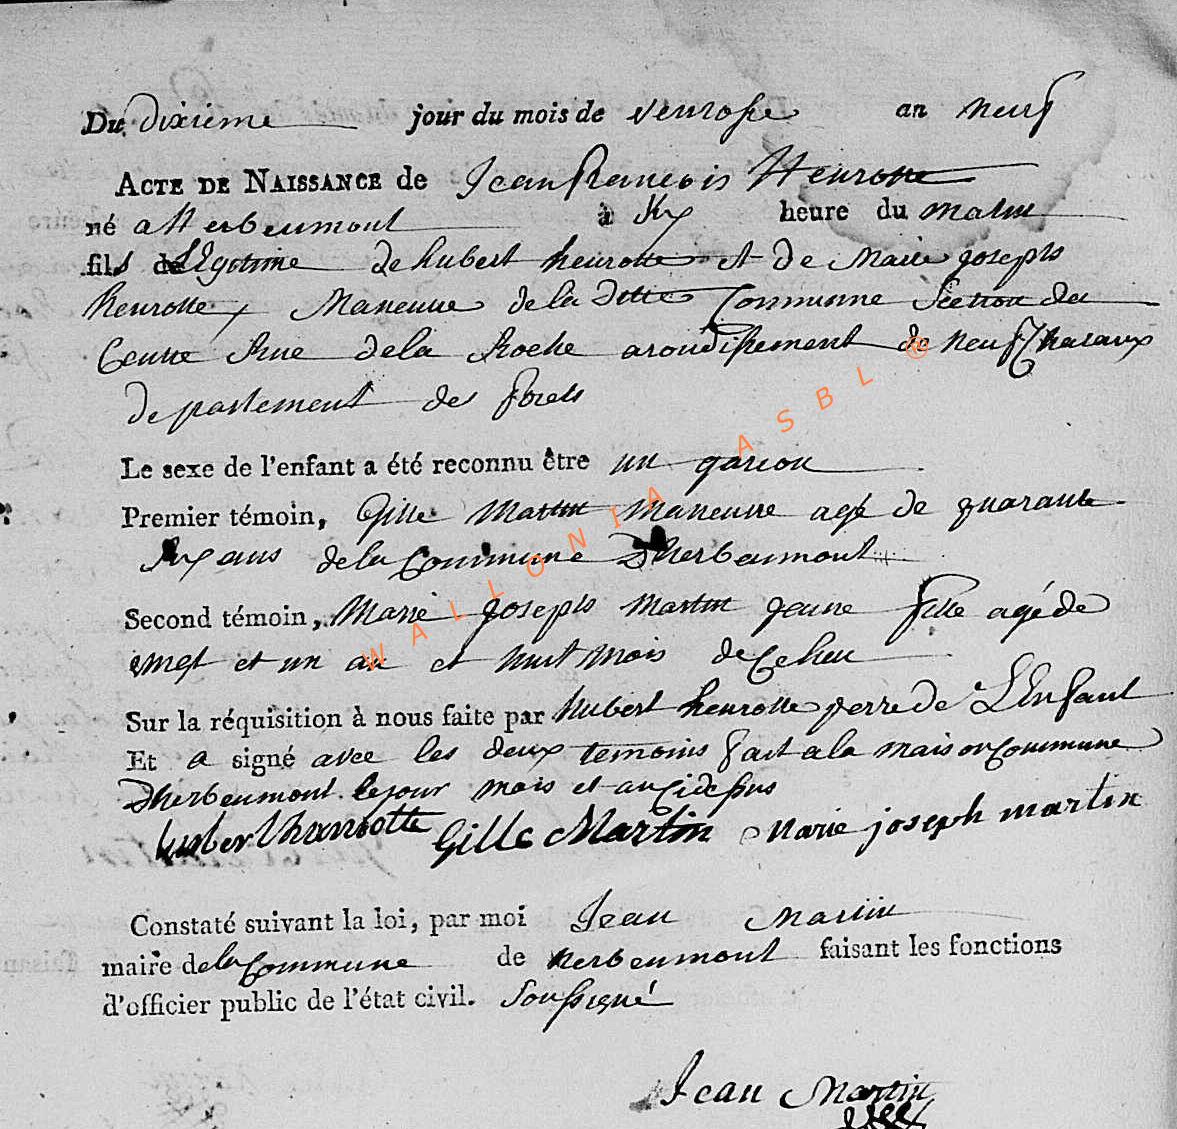 Du dixieme jour du mois de ventose an neuf
ACTE DE NAISSANCE de Jean francois Henrotte
né a Herbeumont à six heure du matin
fils de Legitime de hubert henrotte et de Marie joseph
henrotte, Maneuvre de la ditte Commune Section du
Centre Rue de la Roche arondissement de neuf Chataux
departement des forets
Le sexe de l'enfant a été reconnu être un garcon
Premier témoin, Gille Martin Maneuvre agé de quarante
six ans de la Commune D'herbeumont
Second témoin, Marie joseph Martin jeune fille agé de
vingt et un an et huit mois de Ce lieu
Sur la réquisition à nous faite par hubert henrotte perre de L'Enfant
Et a signé avec les deux temoins fait a la maison Commune
D'herbeumont le jour mois et an Cidessus
huber henrotte Gille Martin Marie joseph martin
Constaté suivant la loi, par moi Jean Martin
maire de la Commune de herbeumont faisant les fonctions
d'officier public de l'état civil. Soussigné
Jean Martin
WALLONIA ASBL ®